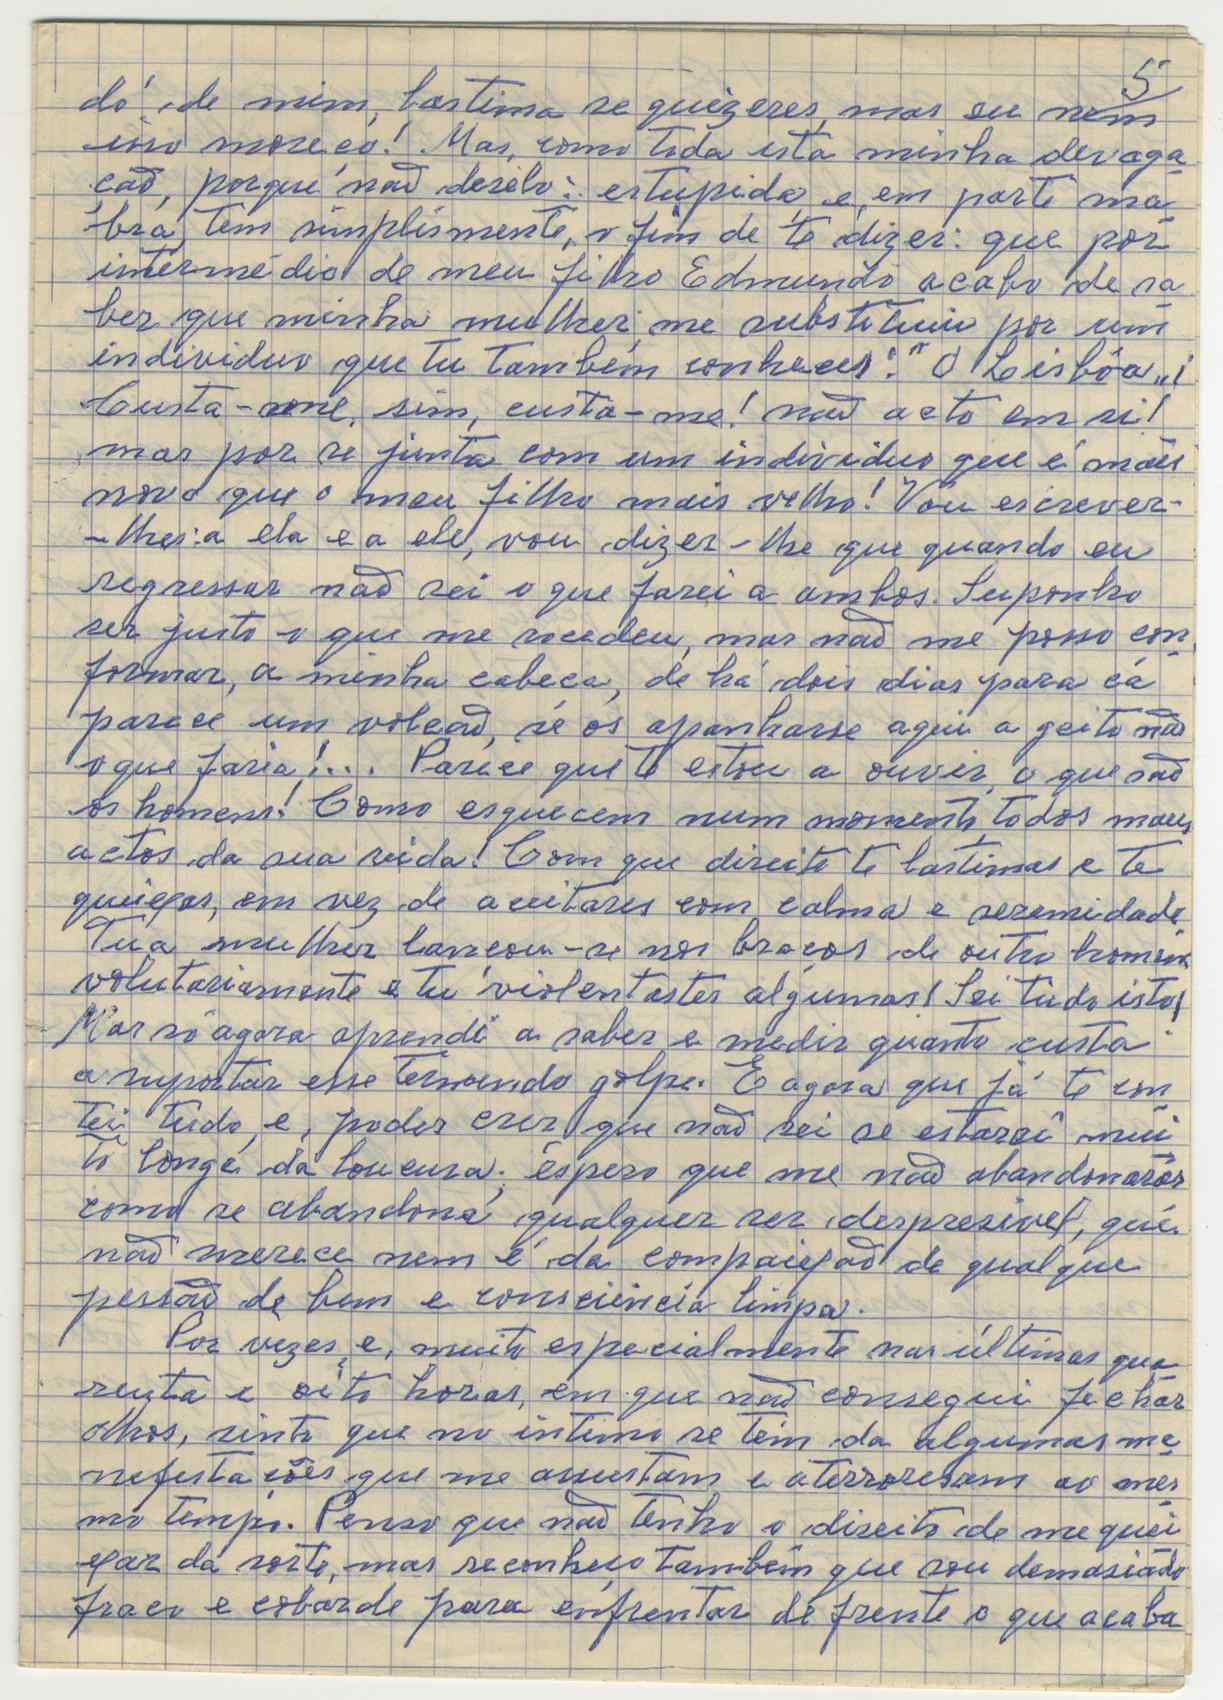 5
dó de mim, lastima se quizeres, mas eu nem
isso mereço! Mas, como toda esta minha devaga_
çaõ, porque naõ dizelo: estupida e, em parte ma_
bra, tem simplismente, o fim de te dizer: que por
intermédio de meu filho Edmundo acabo de sa_
ber que minha mulher, me substituiu por um
individuo que tu também conheces: "O Lisbôa"!
Custa-me, sim, custa-me! naõ acto em si!
mas por se junta com um individuo que é mais
novo que o meu filho mais velho! Vou escrever-
-lhes: a ela e a ele, vou dizer-lhe que quando eu
regressar naõ sei o que farei a ambos. Suponho
ser justo o que me socedeu, mas naõ me posso con_
formar, a minha cabeça, de há dois dias para cá
parece um volcaõ, se os apanhasse aqui a geito naõ
o que faria!... Parece que te estou a ouvir, o que saõ
os homens! Como esquecem num momento todos maus
actos da sua vida! Com que direito te lastimas e te
queixas, em vez de aceitares com calma e serenidade
Tua mulher lançou-se nos braços de outro homem
volutariamente e tu violentastes algumas! Sei tudo isto!
Mas só agora aprendi a saber e medir quanto custa
a suportar esse tremendo golpe. E agora que já te con_
tei tudo, e, podes crer que naõ sei se estarei mui_
to longe da loucura; espero que me naõ abandonarás
como se abandona qualquer ser despresivel, que
naõ merece nem é da compaixaõ de qualque
pessoã de bem e consciência limpa.
Por vezes e, muito especialmente nas últimas qua_
renta e oito horas, em que naõ consegui fechar
olhos, sinto que no intimo se tem da algumas ma_
nefestações que me assustam e aterrorisam ao mes_
mo tempo. Penso que naõ tenho o direito de me quei_
xar da sorte, mas reconheço também que sou demasiado
fraco e cobarde para enfrentar de frente o que acaba